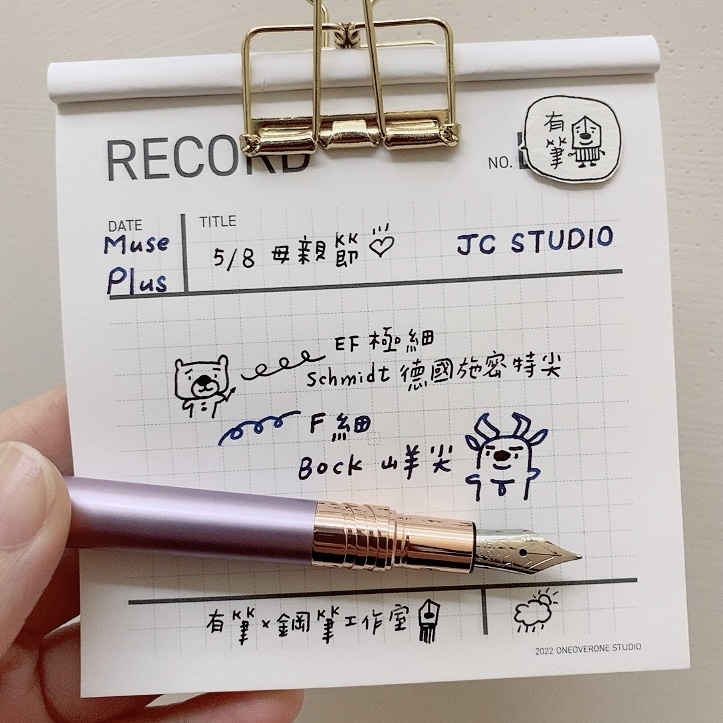 RECORD
NO.
有筆
DATE
TITLE
Muse
Plus
5/8 母親節
JC STUDIO
EF 極細
Schmidt 德國施密特尖
F 細
Bock 山羊尖
有筆×鋼筆工作室
2022 ONEOVERONE STUDIO